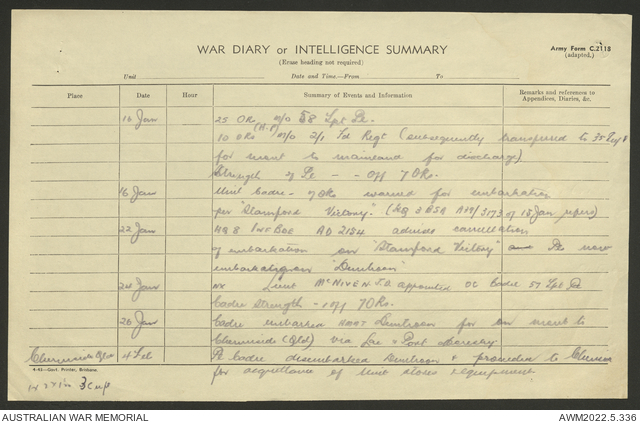 WAR DIARY or INTELLIGENCE SUMMARY
Army Form C.2118
(adapted.)
(Erase heading not required)
Unit Date and Time.—From To
Place Date Hour Summary of Events and Information Remarks and references to Appendices, Diaries, &c.
16 Jan 25 ORs m/o 58 Tpt Pl.
10 ORs (A.P) m/o 2/1 Fd Regt (subsequently transferred to
for mvmt to mainland for discharge)
Strength of Pl - - Off 7 ORs.
16 Jan Unit Cadre - 7 ORs warned for embarkation
per "Stamford Victory". (HQ 3 BSA of 15 Jan refers)
22 Jan HQ 8 INF BDE AQ 2154 advised cancellation
of embarkation on "Stamford Victory" and Pl now
embarkation on "Duntroon"
24 Jan Lieut McNIVEN J.B. appointed OC Cadre 57 Tpt Pl
Cadre Strength - 1 off 7 ORs.
26 Jan Cadre embarked HMAT Duntroon for mvmt to
Chermside (Qld) via Lae & Port Moresby
Chermside Qld 4 Feb Pl Cadre disembarked Duntroon & proceeded to
for acquittance of Unit stores & equipment
4-43—Govt. Printer, Brisbane.
AUSTRALIAN WAR MEMORIAL
AWM2022.5.336